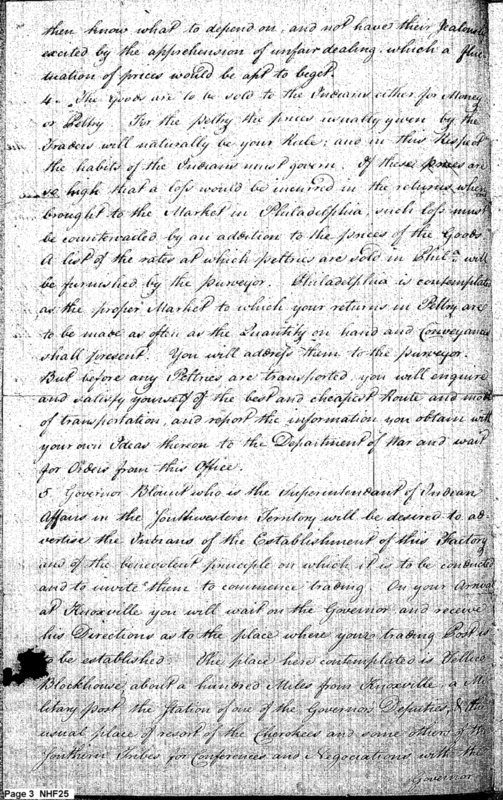 then know what to depend on, and not have their Jealousy
excited by the apprehension of unfair dealing, which a fluc-
tuation of prices would be apt to beget.
4. The Goods are to be sold to the Indians either for Money
or Peltry For the peltry the prices usually given by the
Traders will naturally be your Rule; and in this Respect
the habits of the Indians must govern. If these prices are
so high that a loss would be incurred in the returns when
brought to the Market in Philadelphia, such loss must
be countervailed by an addition to the prices of the Goods
A list of the rates at which peltries are sold in Phila. will
be furnished by the purveyor. Philadelphia is contemplated
as the proper Market to which your returns in Peltry are
to be made as often as the Quantity on hand and Conveyance
shall present. You will address them to the purveyor.
But before any Peltries are transported, you will enquire
and satisfy yourself of the best and cheapest Route and mode
of transportation, and report the information you obtain with
your own Ideas thereon to the Department of War and wait
for Orders from this Office.
5. Governor Blount who is the Superintendant of Indian
Affairs in the Southwestern Territory will be desired to ad-
vertise the Indians of the Establishment of this Factory,
and of the benevolent principle on which it is to be conducted
and to invite them to commence trading. On your Arrival
at Knoxville you will wait on the Governor and receive
his Directions as to the place where your trading Post is
to be established. The place here contemplated is Tellico
Blockhouse, about a hundred Miles from Knoxville, a Mi-
litary post the Station of one of the Governors Deputies, & the
usual place of resort of the Cherokees and some others of the
Southern Tribes for Conferences and Negociations with the
Governor
Page 3 NHF25